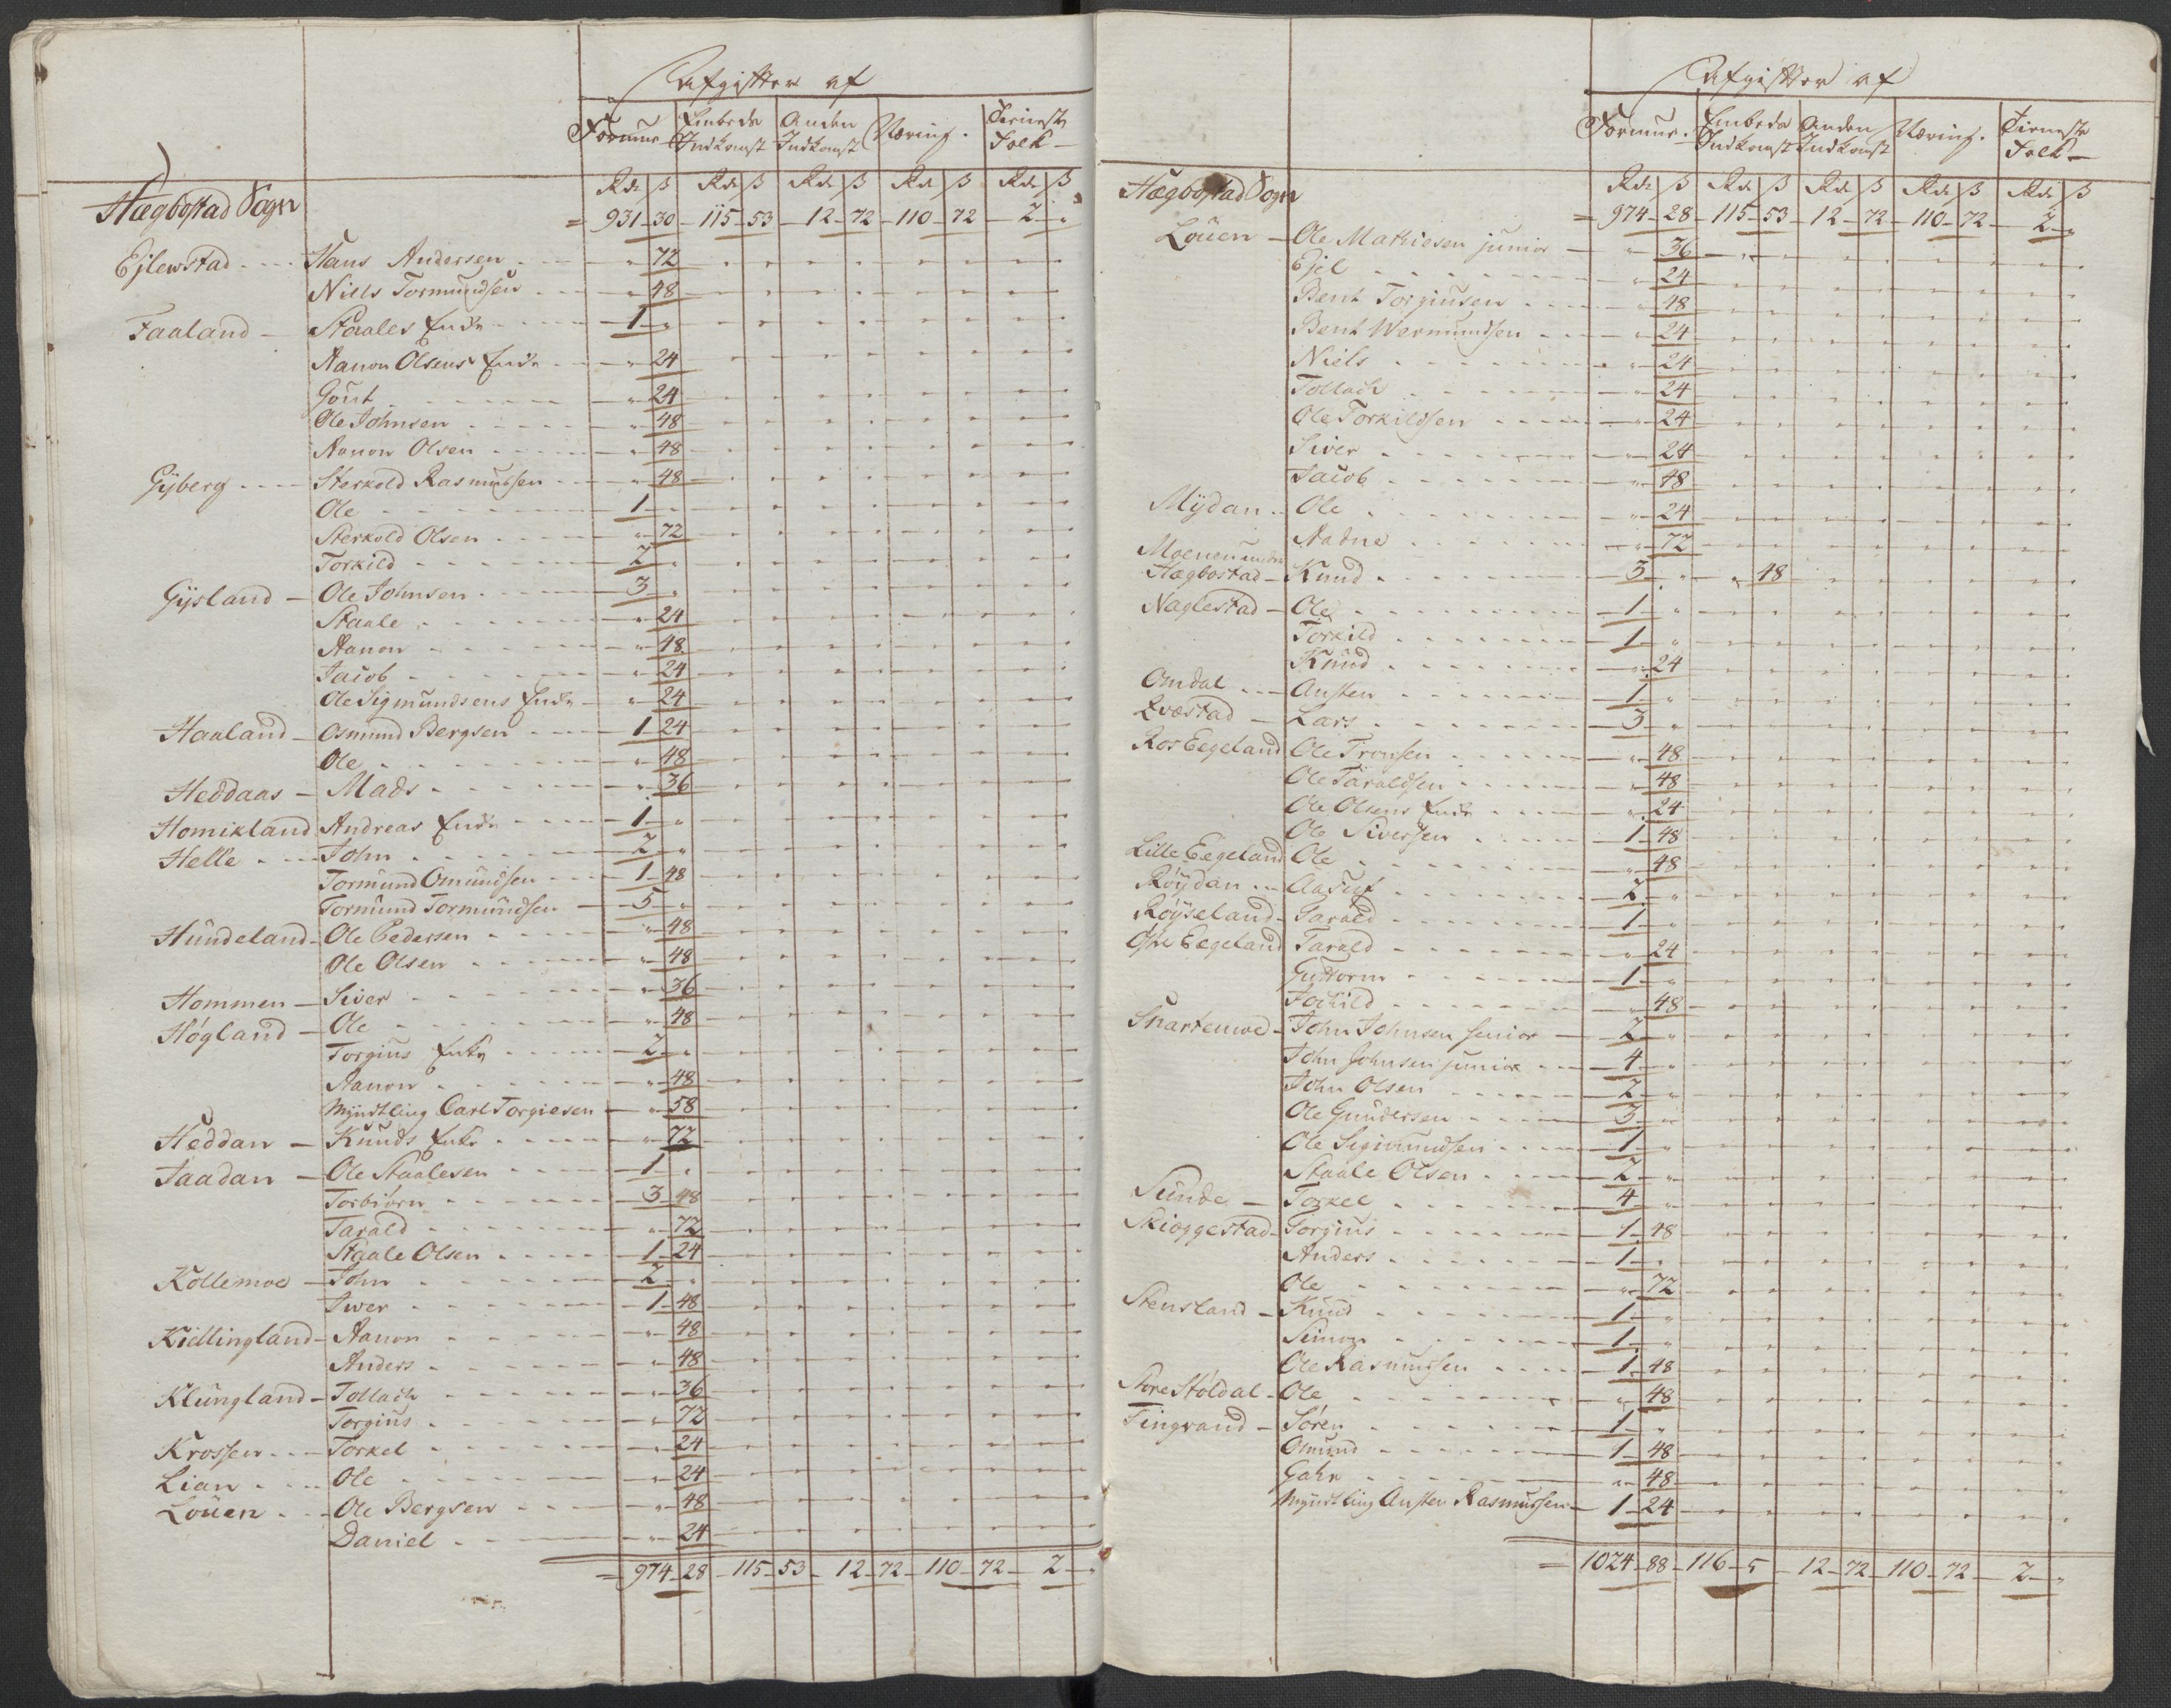 Afgifter af
Formue Embeds Indkomst Anden Indkomst Næring. Tieneste Folk
Rdr ß Rdr ß Rdr ß Rdr ß Rdr ß
Hægbostad Sogn = 931 30 115 53 12 72 110 72 2 "
Ejlewstad Hans Andersen " 72
Niels Tormundsen " 48
Faaland Staales Enke 1 "
Aanon Olsens Enke " 24
Gout " 24
Ole Johnsen " 48
Aanon Olsen " 48
Gyberg Sterkold Rasmussen " 48
Ole 1 "
Sterkold Olsen " 72
Torkild 2 "
Gysland Ole Johnsen 3 "
Staale " 24
Aanon " 48
Jacob " 24
Ole Sigmundsens Enke " 24
Haaland Osmund Bergsen 1 24
Ole " 48
Heddaas Mads " 36
Homikland Andreas Enke 1 "
Helle John 2 "
Tormund Omundsen 1 48
Tormund Tormundsen 5 "
Hundeland Ole Pedersen " 48
Ole Olsen " 48
Hommen Siver " 36
Høgland Ole " 48
Torgius Enke 2 "
Aanon " 48
Myndtling Carl Torgiesen " 58
Heddan Knuds Enke " 72
Jaadan Ole Staalesen 1 "
Torbiørn 3 48
Tarald " 72
Staale Olsen 1 24
Kollemoe John 2 "
Iwer 1 48
Kidlingland Aanon " 48
Anders " 48
Klungland Tollach " 36
Torgius " 72
Krossen Torkel " 24
Lian Ole " 24
Louen Ole Bergsen " 48
Daniel " 24
= 974 28 115 53 12 72 110 72 2 "
Afgifter af
Formue. Embeds Indkomst Anden Indkomst Næring. Tieneste Folk
Rdr ß Rdr ß Rdr ß Rdr ß Rdr ß
Hægbostad Sogn = 974 28 115 53 12 72 110 72 2 "
Louen Ole Mathiesen junior " 36
Ejel " 24
Bent Torgiusen " 48
Bent Wermundsen " 24
Niels " 24
Tollach " 24
Ole Torkildsen " 24
Siver " 24
Jacob " 48
Mydan Ole " 24
Aadne " 72
Moenen under
Hægbostad Knud 3 " " 48
Naglestad Ole 1 "
Torkild 1 "
Knud " 24
Omdal Austen 1 "
Qvæstad Lars 3 "
Ros Eegeland Ole Tronsen " 48
Ole Taraldsen " 48
Ole Olsens Enke " 24
Ole Siversen 1 48
Lille Eegeland Ole " 48
Røydan Aasuf 2 "
Røyseland Tarald 1 "
Østre Eegeland Tarald " 24
Guttorm 1 "
Jockild " 48
Snartemoe John Johnsen senior 2 "
John Johnsen junior 4 "
John Olsen 2 "
Ole Gundersen 3 "
Ole Sigmundsen 1 "
Staale Olsen 2 "
Sunde Torkel 4 "
Skieggestad Torgius 1 48
Anders 1 "
Ole " 72
Stensland Knud 1 "
Simon 1 "
Ole Rasmussen 1 48
Store Støldal Ole " 48
Tingvand Søren 1 "
Omund 1 48
Gahr " 48
Myndtling Austen Rasmussen 1 24
= 1024 88 116 5 12 72 110 72 2 "